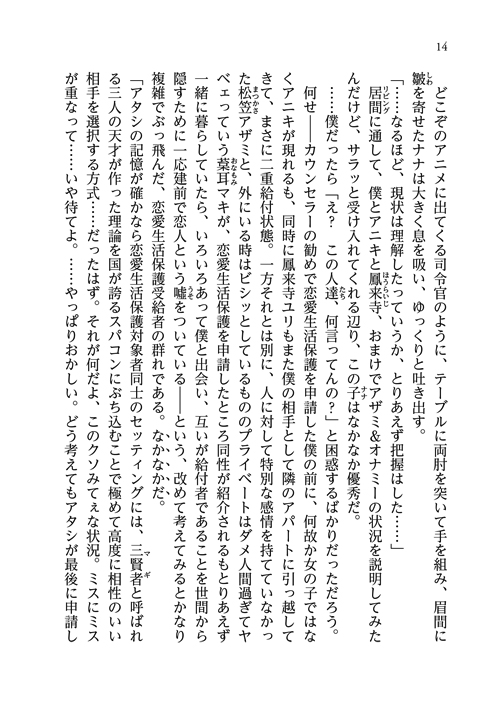 14
どこぞのアニメに出てくる司令官のように、テーブルに両肘を突いて手を組み、眉間に
皺を寄せたナナは大きく息を吸い、ゆっくりと吐き出す。
「……なるほど、現状は理解したっていうか、とりあえず把握はした……」
居間に通して、僕とアニキと鳳来寺、おまけでアザミ＆オナミーの状況を説明してみた
んだけど、サラッと受け入れてくれる辺り、この子はなかなか優秀だ。
……僕だったら「え？　この人達、何言ってんの？」と困惑するばかりだっただろう。
何せ――カウンセラーの勧めで恋愛生活保護を申請した僕の前に、何故か女の子ではな
くアニキが現れるも、同時に鳳来寺ユリもまた僕の相手として隣のアパートに引っ越して
きて、まさに二重給付状態。一方それとは別に、人に対して特別な感情を持てていなかっ
た松笠アザミと、外にいる時はビシッとしているもののプライベートはダメ人間過ぎてヤ
ベェっていう葈耳マキが、恋愛生活保護を申請したところ同性が紹介されるもとりあえず
一緒に暮らしていたら、いろいろあって僕と出会い、互いが給付者であることを世間から
隠すために一応建前で恋人という嘘をついている――という、改めて考えてみるとかなり
複雑でぶっ飛んだ、恋愛生活保護受給者の群れである。なかなかだ。
「アタシの記憶が確かなら恋愛生活保護対象者同士のセッティングには、三賢者と呼ばれ
る三人の天才が作った理論を国が誇るスパコンにぶち込むことで極めて高度に相性のいい
相手を選択する方式……だったはず。それが何だよ、このクソみてぇな状況。ミスにミス
が重なって……いや待てよ。……やっぱりおかしい。どう考えてもアタシが最後に申請し